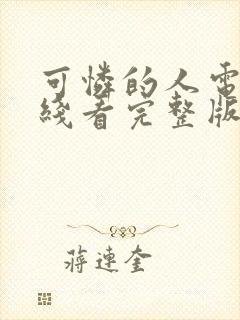 可憐的人電
綫看完整版
蔣連奎